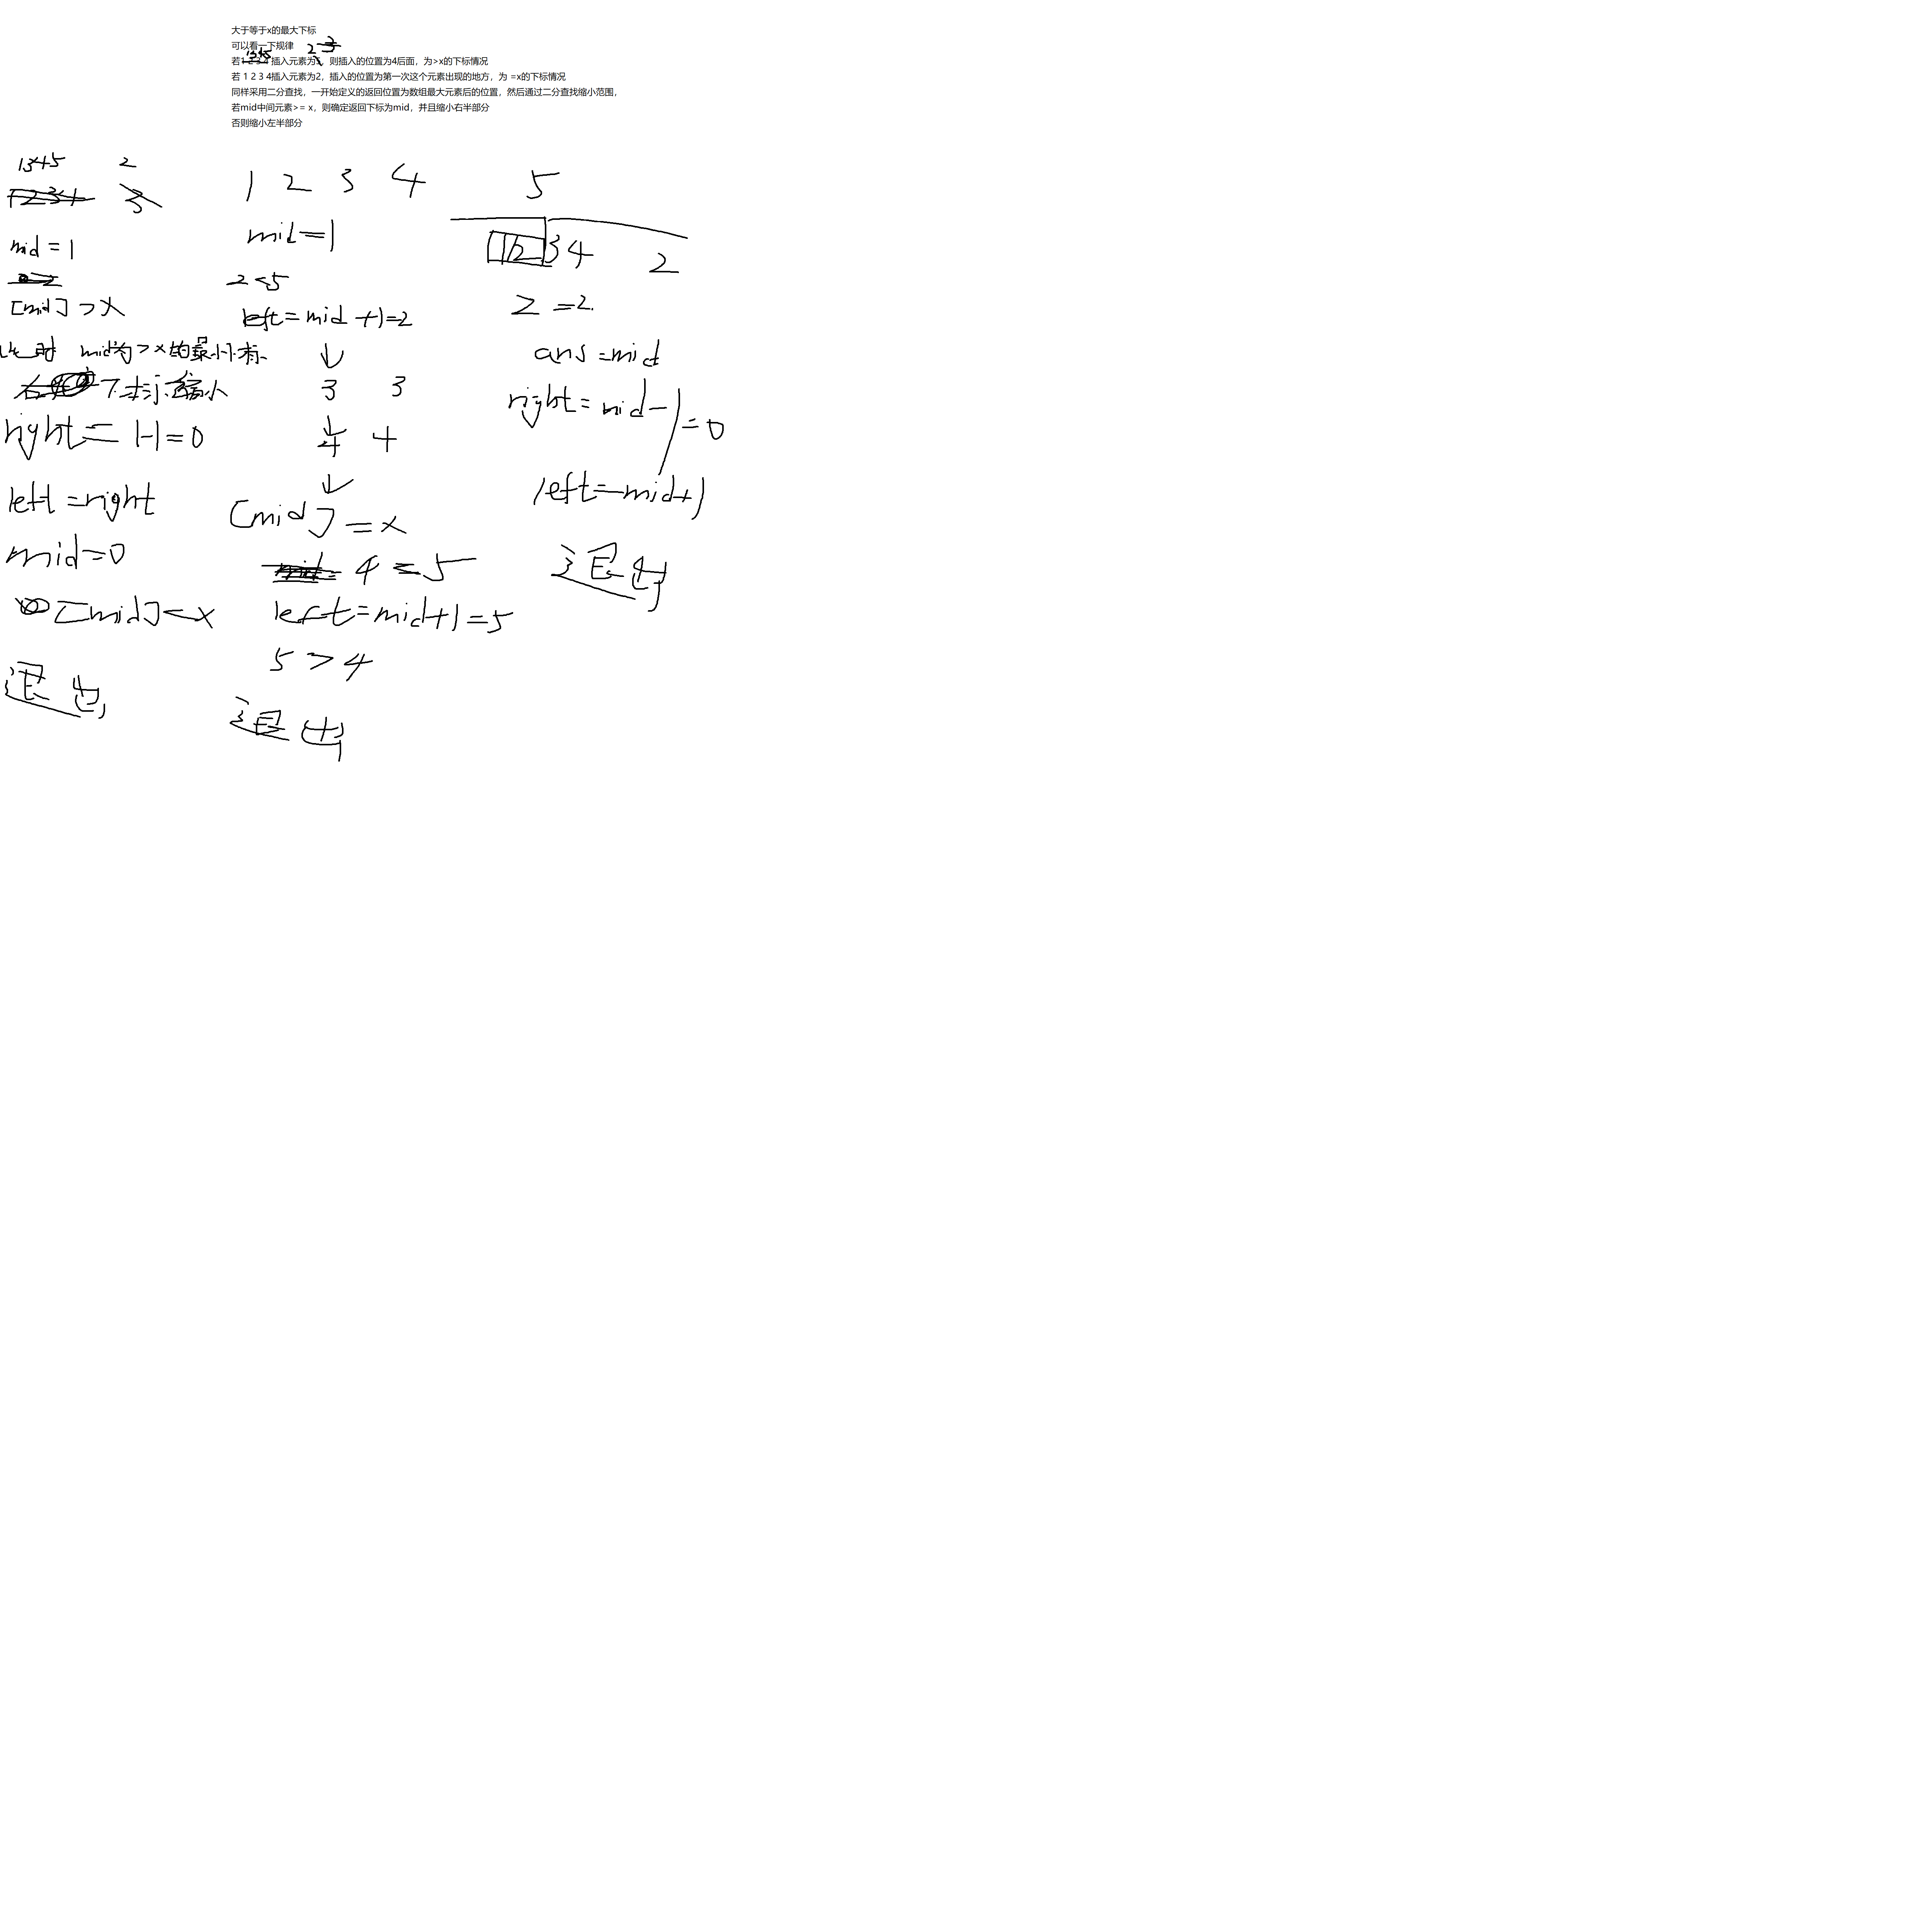 大于等于x的最大下标
可以看一下规律
2 3
1345
若1 2 3 4 插入元素为5，则插入的位置为4后面，为>x的下标情况
若 1 2 3 4插入元素为2，插入的位置为第一次这个元素出现的地方，为 =x的下标情况
同样采用二分查找，一开始定义的返回位置为数组最大元素后的位置，然后通过二分查找缩小范围，
若mid中间元素>= x，则确定返回下标为mid，并且缩小右半部分
否则缩小左半部分
1345 2
1234 3
mid = 1
[mid] > x
此时 mid为 > x 的最小下标
right = 1-1 = 0
left = right
mid = 0
[mid] < x
退出
1 2 3 4 5
mid = 1
2 < 5
left = mid + 1 = 2
↓
3 3
↓
4 4
↓
[mid] = x
4 = 5
left = mid + 1 = 5
5 > 4
退出
1 2 3 4 2
2 = 2.
ans = mid
right = mid - 1 = 0
left = mid + 1
退出